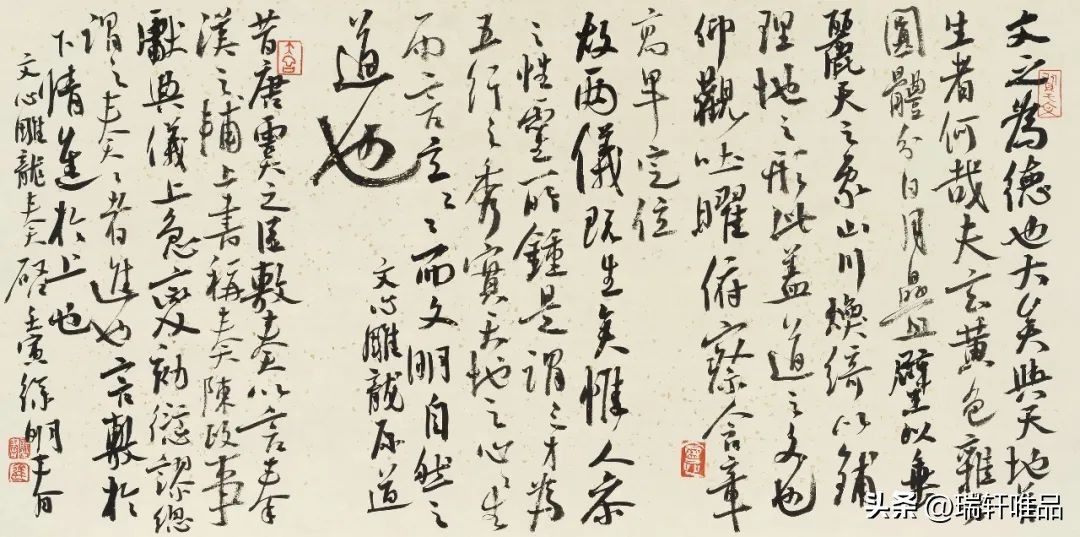 文之為德也大矣與天地並
生者何哉夫玄黃色雜方
圓體分日月疊璧以垂
麗天之象山川煥綺以鋪
理地之形此蓋道之文也
仰觀吐曜俯察含章
高卑定位
故兩儀既生矣惟人參
之性靈所鍾是謂三才為
五行之秀實天地之心〻生
而言立〻而文明自然之
道也
文心雕龍原道
昔唐虞之臣敷奏以言秦
漢之輔上書稱奏陳政事
獻典儀上急變劾愆謬總
謂之奏〻者進也言敷於
下情進於上也
文心雕龍奏啟壬寅徐明
头条 @瑞轩唯品